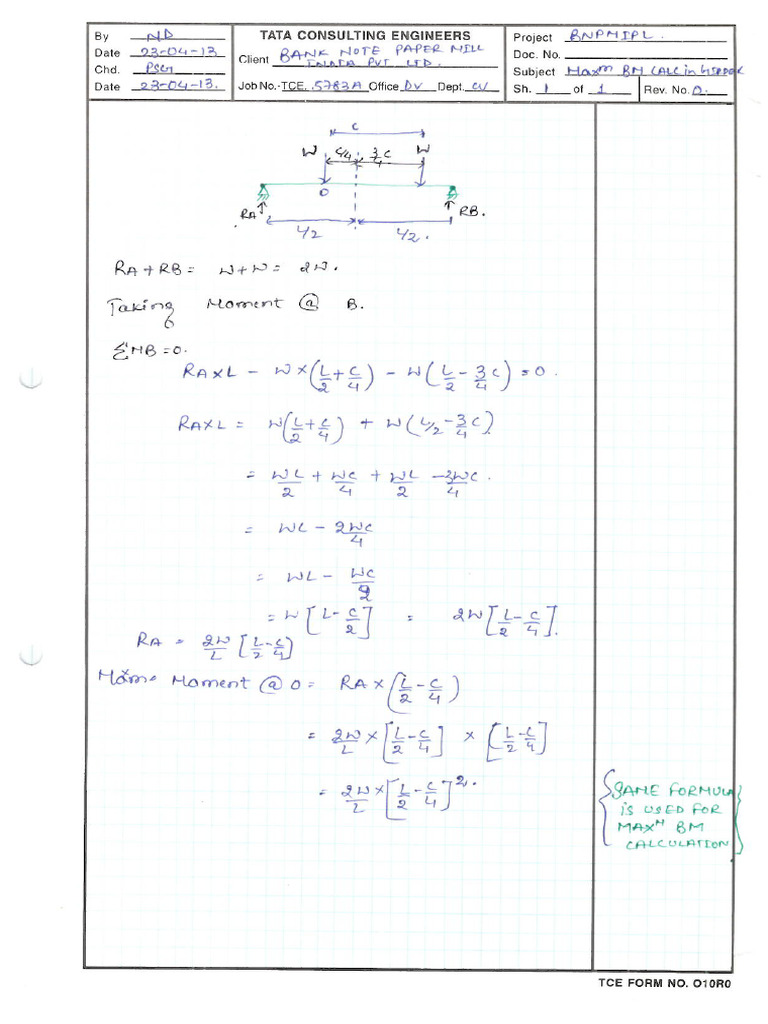 By ND
Date 23-04-13
Chd. PSG
Date 23-04-13.
TATA CONSULTING ENGINEERS
Client BANK NOTE PAPER MILL
INDIA PVT. LTD.
Job No.-TCE. 5783A Office DV Dept. CV
Project BNPMIPL.
Doc. No.
Subject Maxm BM CALC in GIRDER
Sh. 1 of 1 Rev. No. 0.
C
W C/4 3/4 C W
O
RA RB.
L/2 L/2.
RA + RB = W + W = 2W.
Taking Moment @ B.
ΣMB = 0.
RA x L - W x (L/2 + C/4) - W (L/2 - 3/4 C) = 0.
RA x L = W (L/2 + C/4) + W (L/2 - 3/4 C).
= WL/2 + WC/4 + WL/2 - 3WC/4.
= WL - 2WC/4
= WL - WC/2
= W [L - C/2] = 2W [L/2 - C/4].
RA = 2W/L [L/2 - C/4]
Maxm. Moment @ O = RA x (L/2 - C/4)
= 2W/L x [L/2 - C/4] x [L/2 - C/4]
= 2W/L x [L/2 - C/4]².
SAME FORMULA
IS USED FOR
MAXᴹ BM
CALCULATION
TCE FORM NO. O10R0